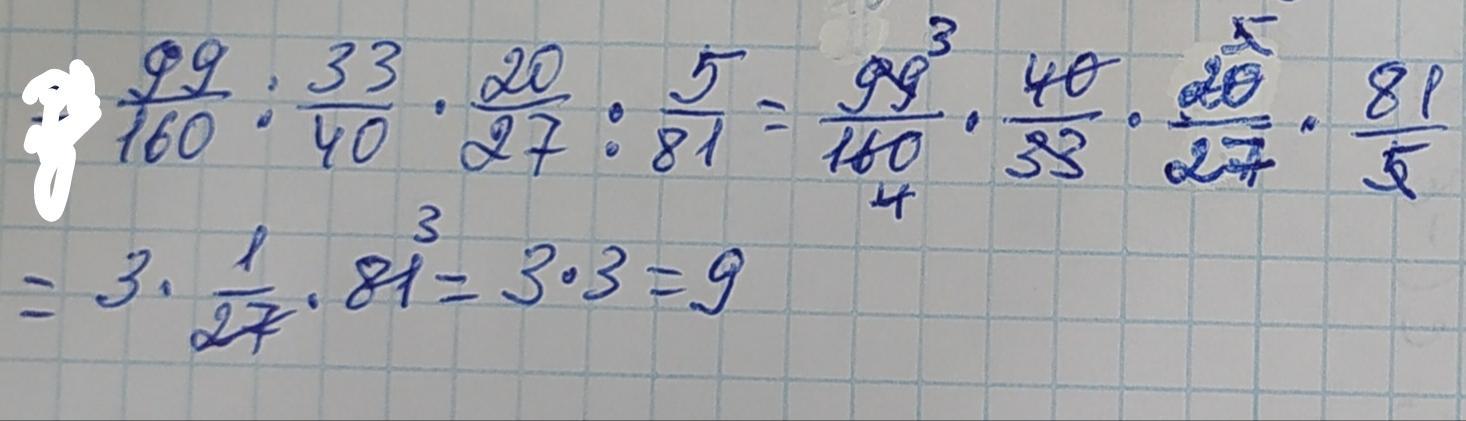 = 99/160 : 33/40 · 20/27 : 5/81 = 99³/160₄ · 40/33 · 20⁵/27 · 81/5
= 3 · 1/27 · 81³ = 3·3 = 9